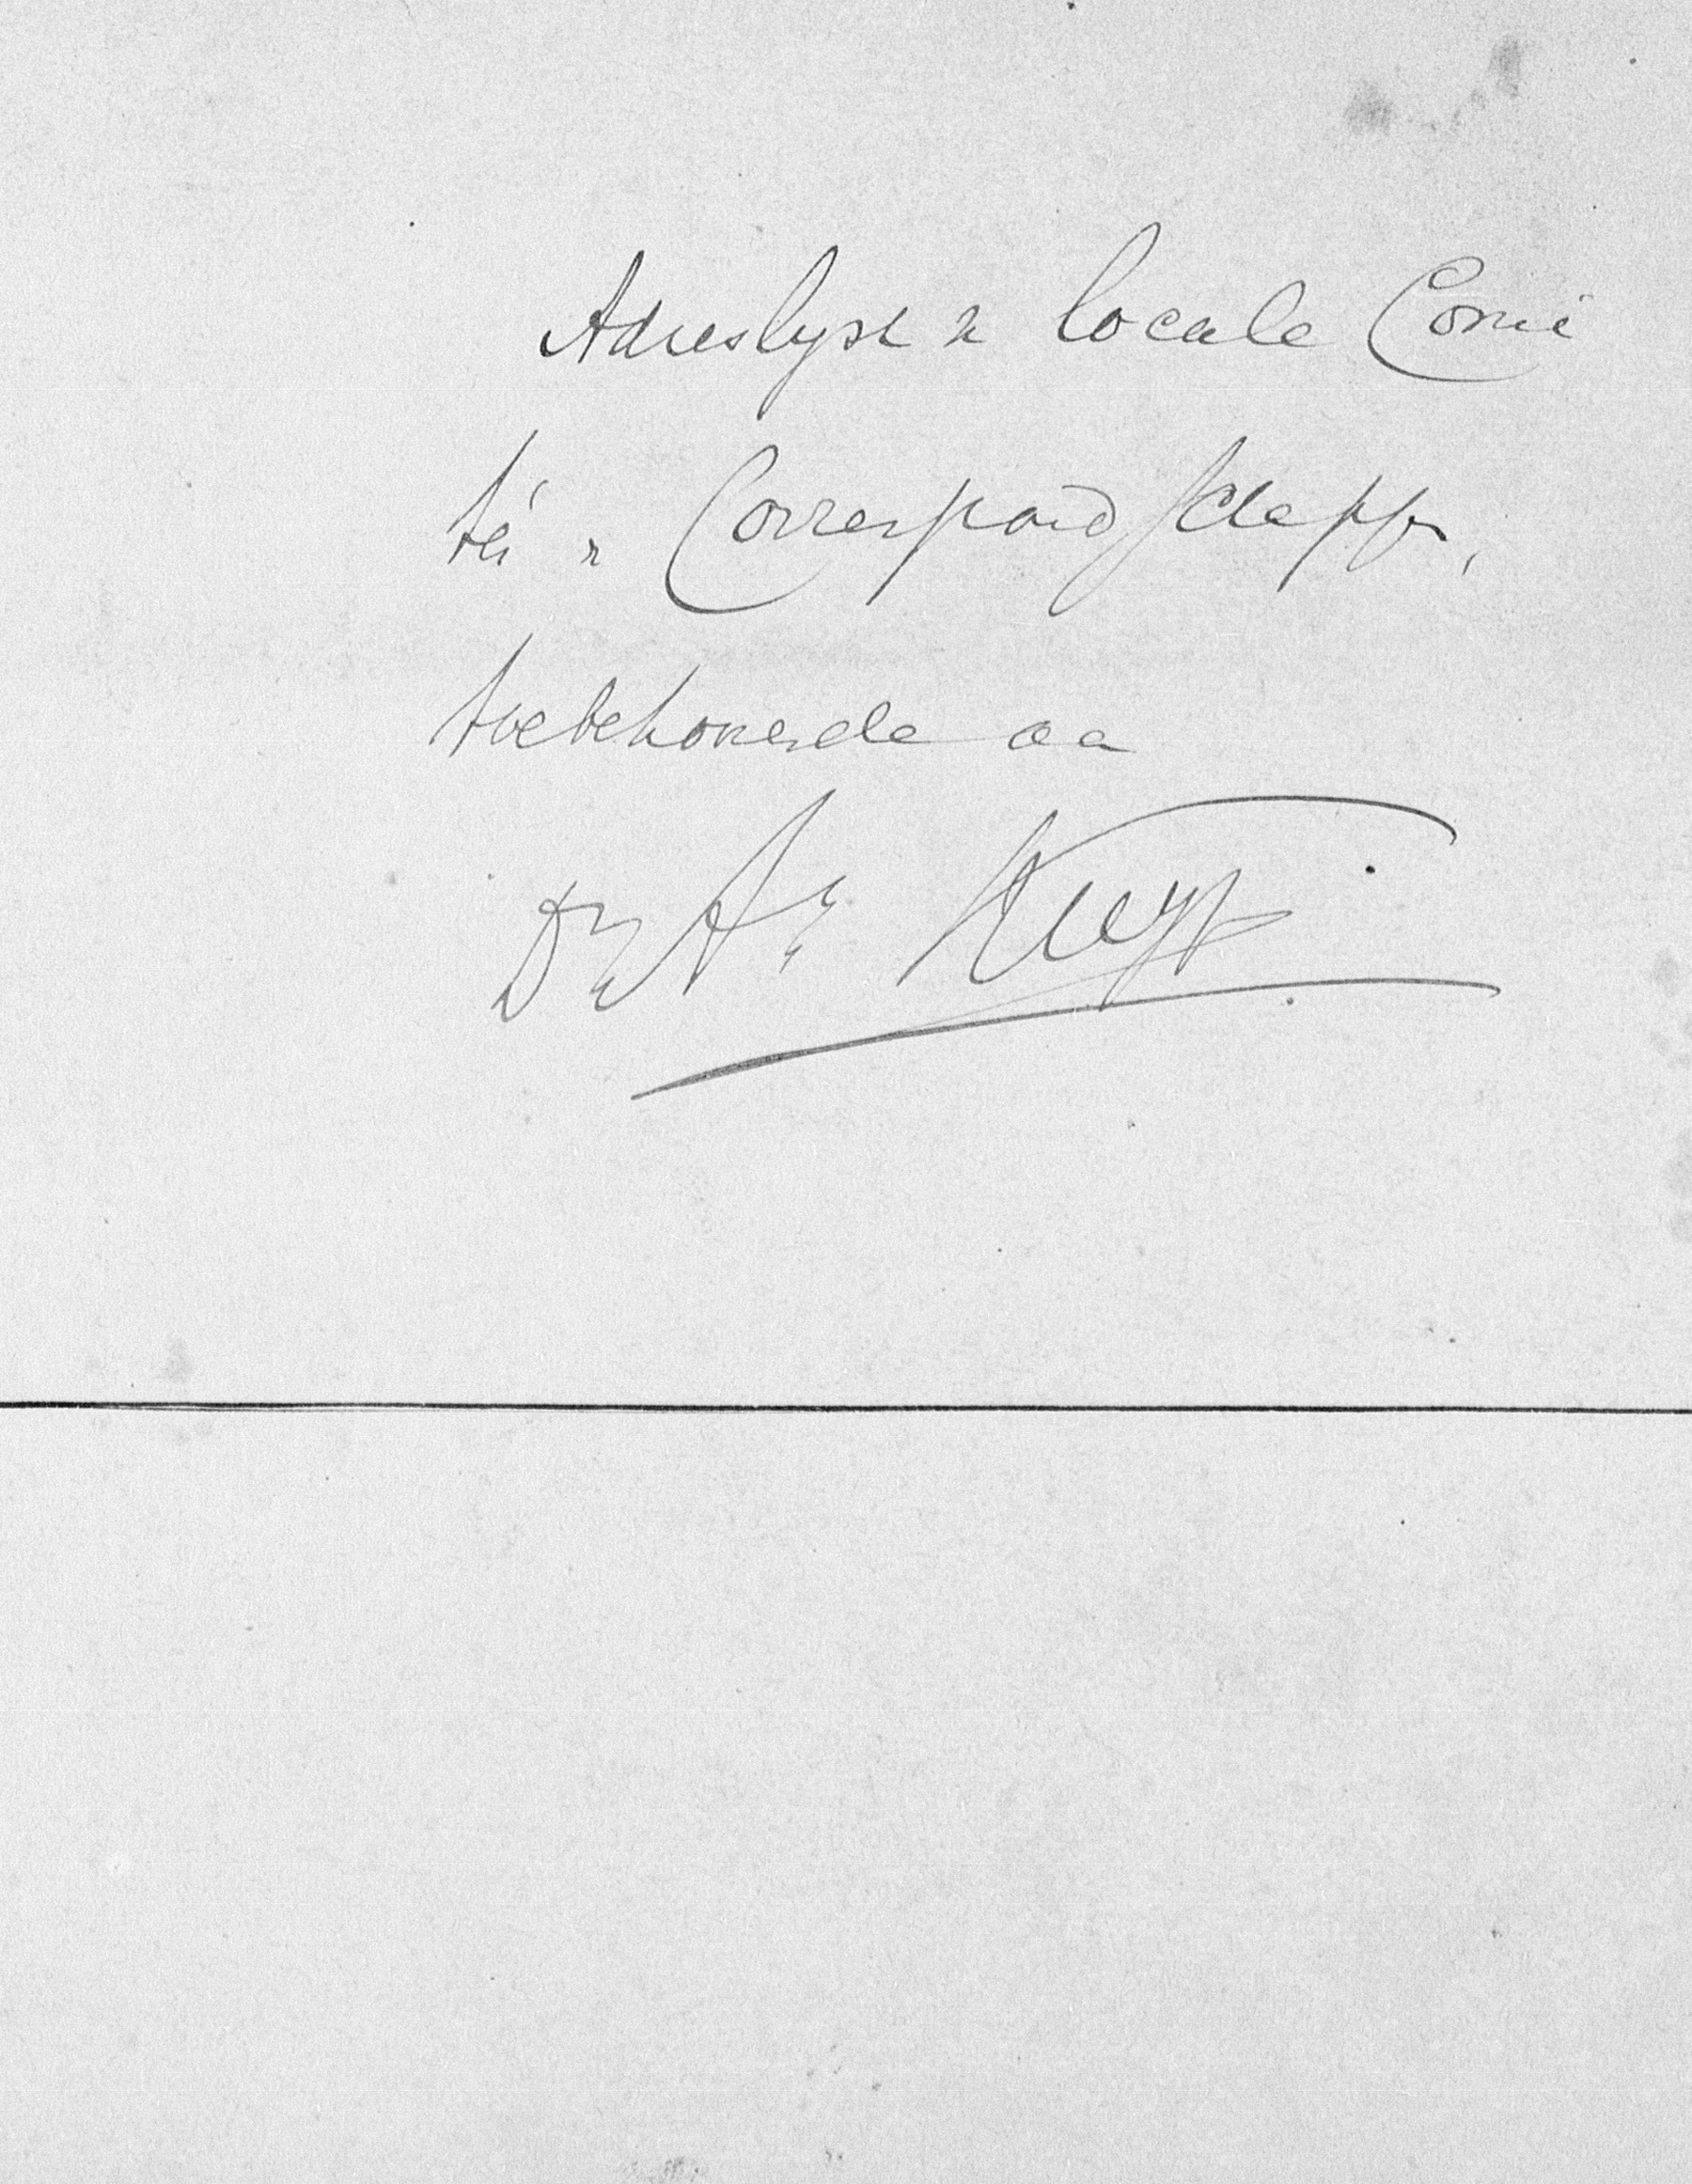 Adreslyst v locale Comi
tés v Correspondschapp,
toebehorende aa
Dr A. Kuyp